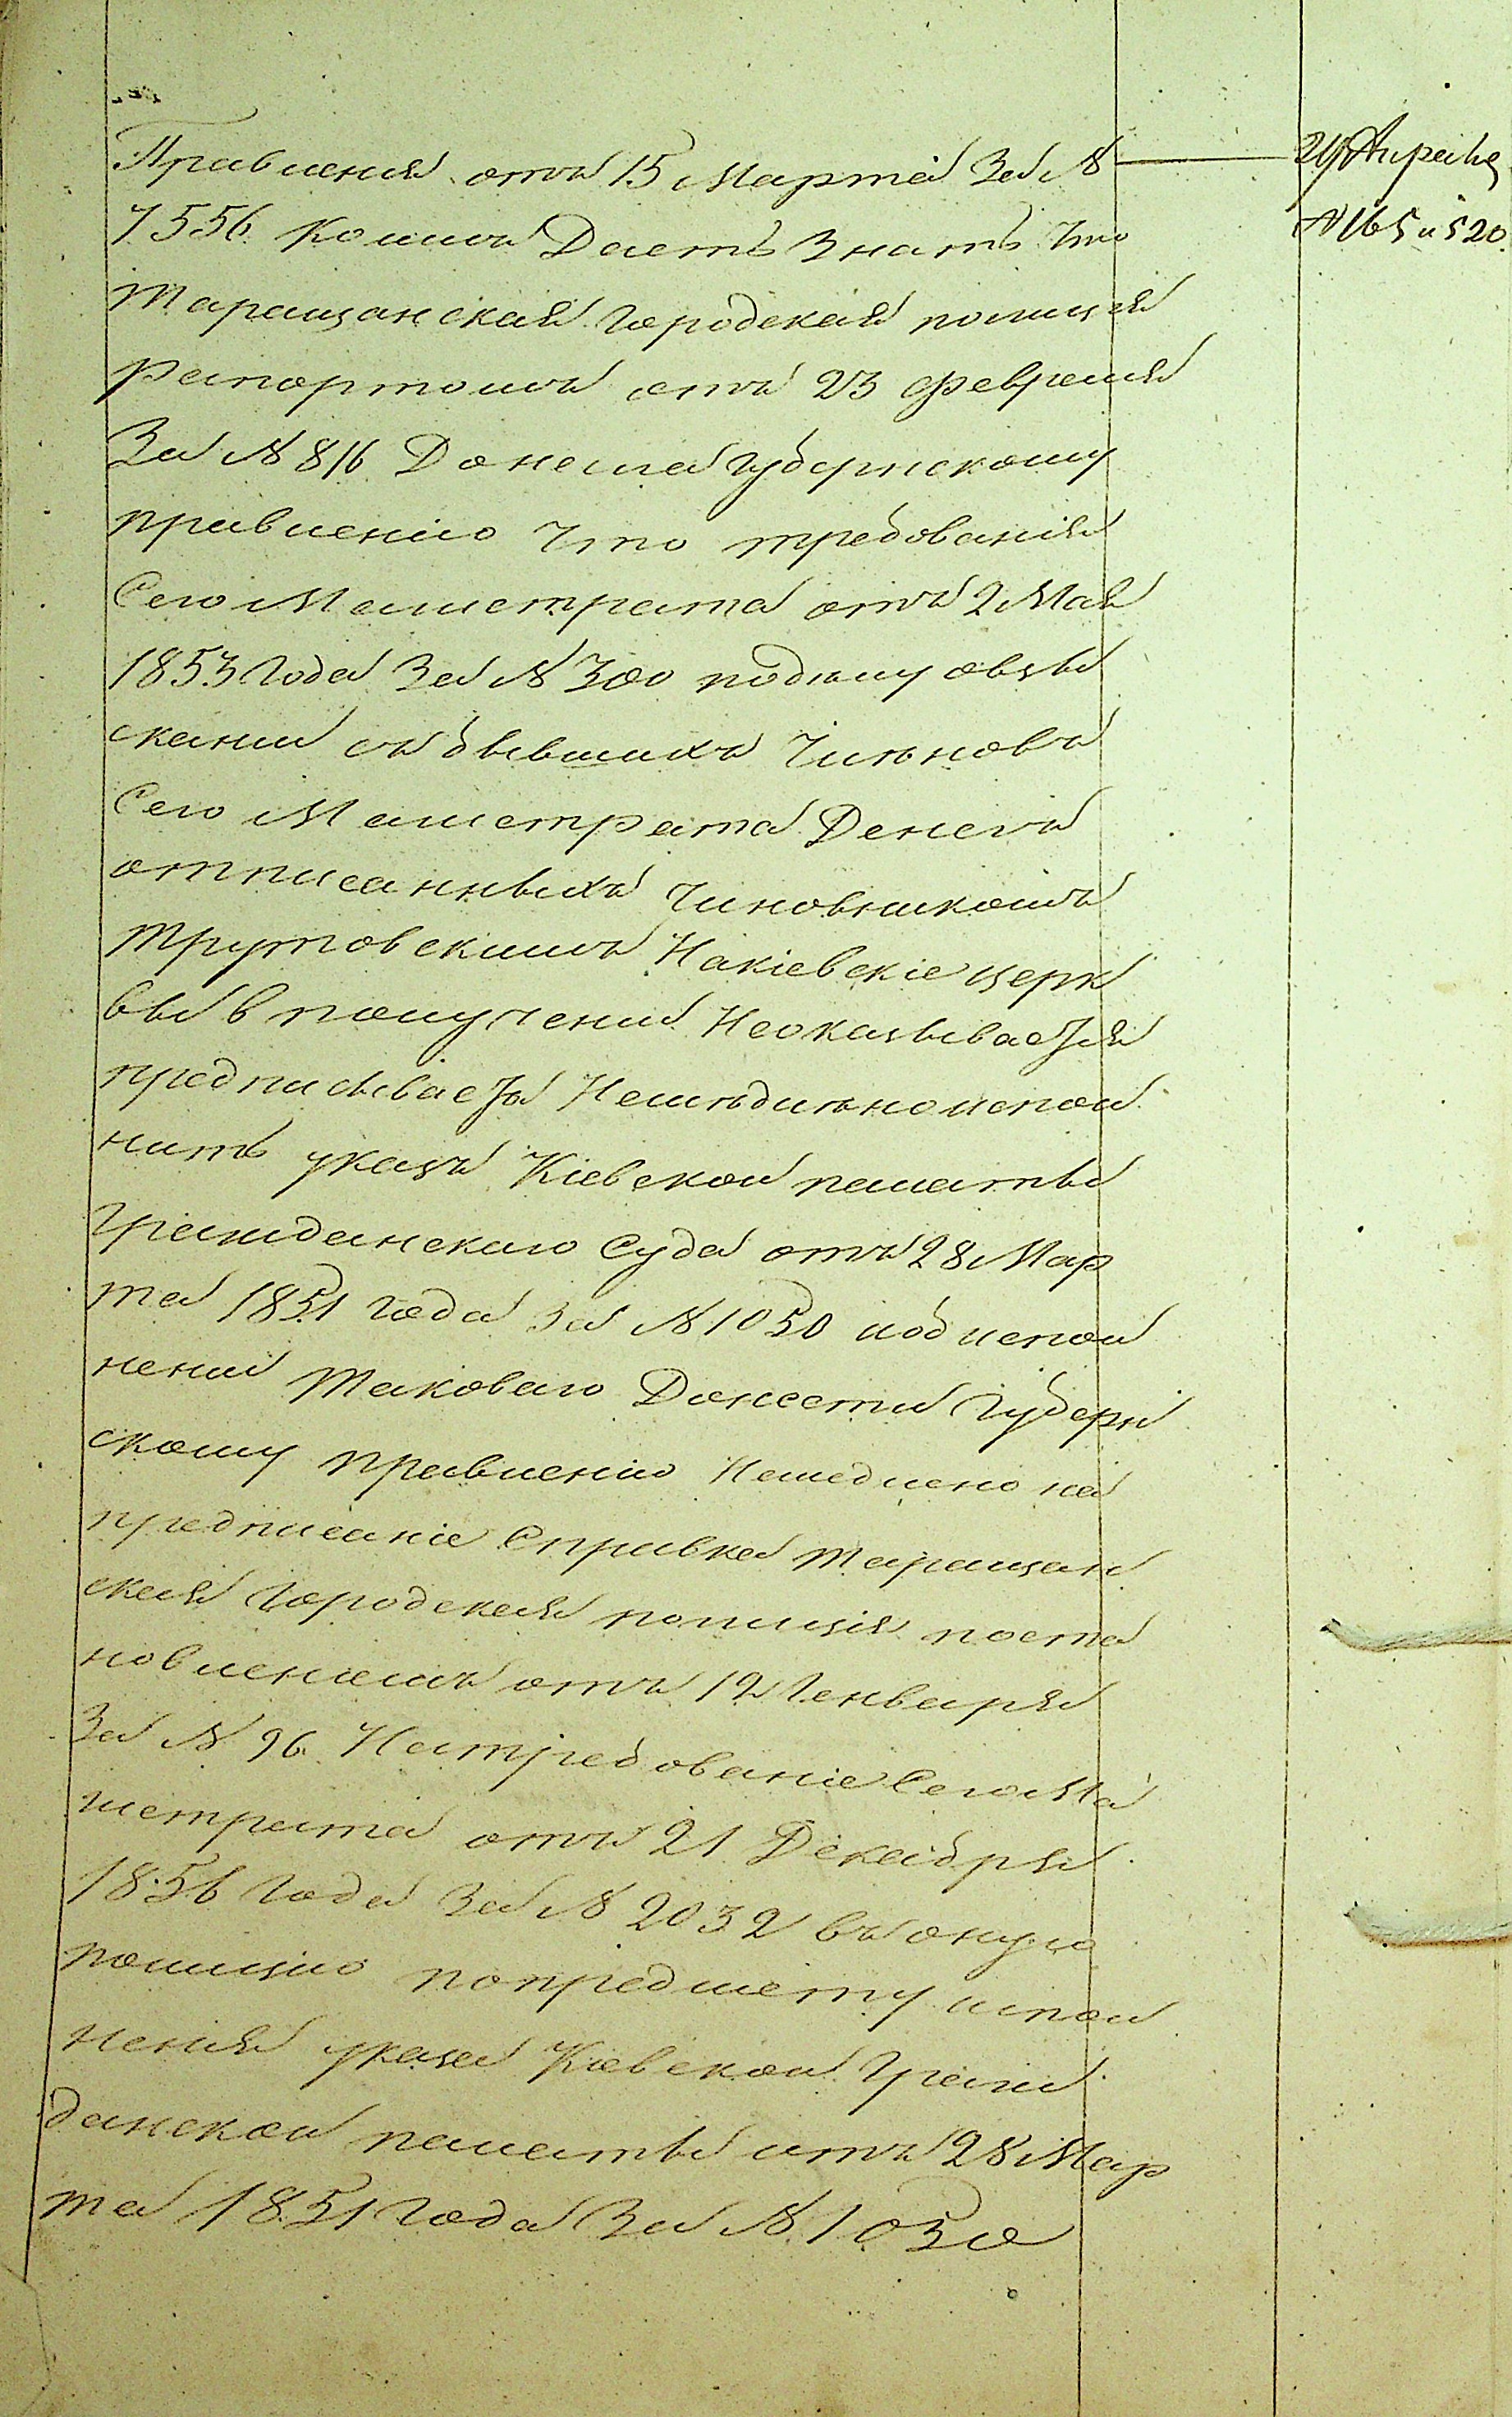 Правленія отъ 15 Марта За №
7556 коимъ Даетъ Знать Что
Таращанская Городская полиція
Рапортомъ отъ 23 Февраля
За № 816 Донесла Губернскому
правленію Что требованія
Сего Магистрата отъ 2 Мая
1853 Года За № 300 подѣлу овзы
сканіи съ бывшихъ Членовъ
Сего Магистрата Денегъ
отписанныхъ Чиновникомъ
Трутовскимъ Накіевскіе церк
вы в получении Неоказывается
предписывается Немѣдлѣно испол
нить указъ Кіевской палаты
Гражданскаго Суда отъ 28 Мар
та 1851 года За № 1050 иоб испол
нении Таковаго Донести Губерн
скому правленію Немедлено на
предписаніе Справка Таращан
ская Городская полиція поста
новленіемъ отъ 12 Генваря
За № 96 Натребованіе Сего Ма
гистрата отъ 21 Декабря
1856 Года За № 2032 въ оную
полицію попредмету испол
ненія указа Кіевской Граж
данской палаты отъ 28 Мар
та 1851 Года За № 1050
24 Апреля
№ 165 и 520